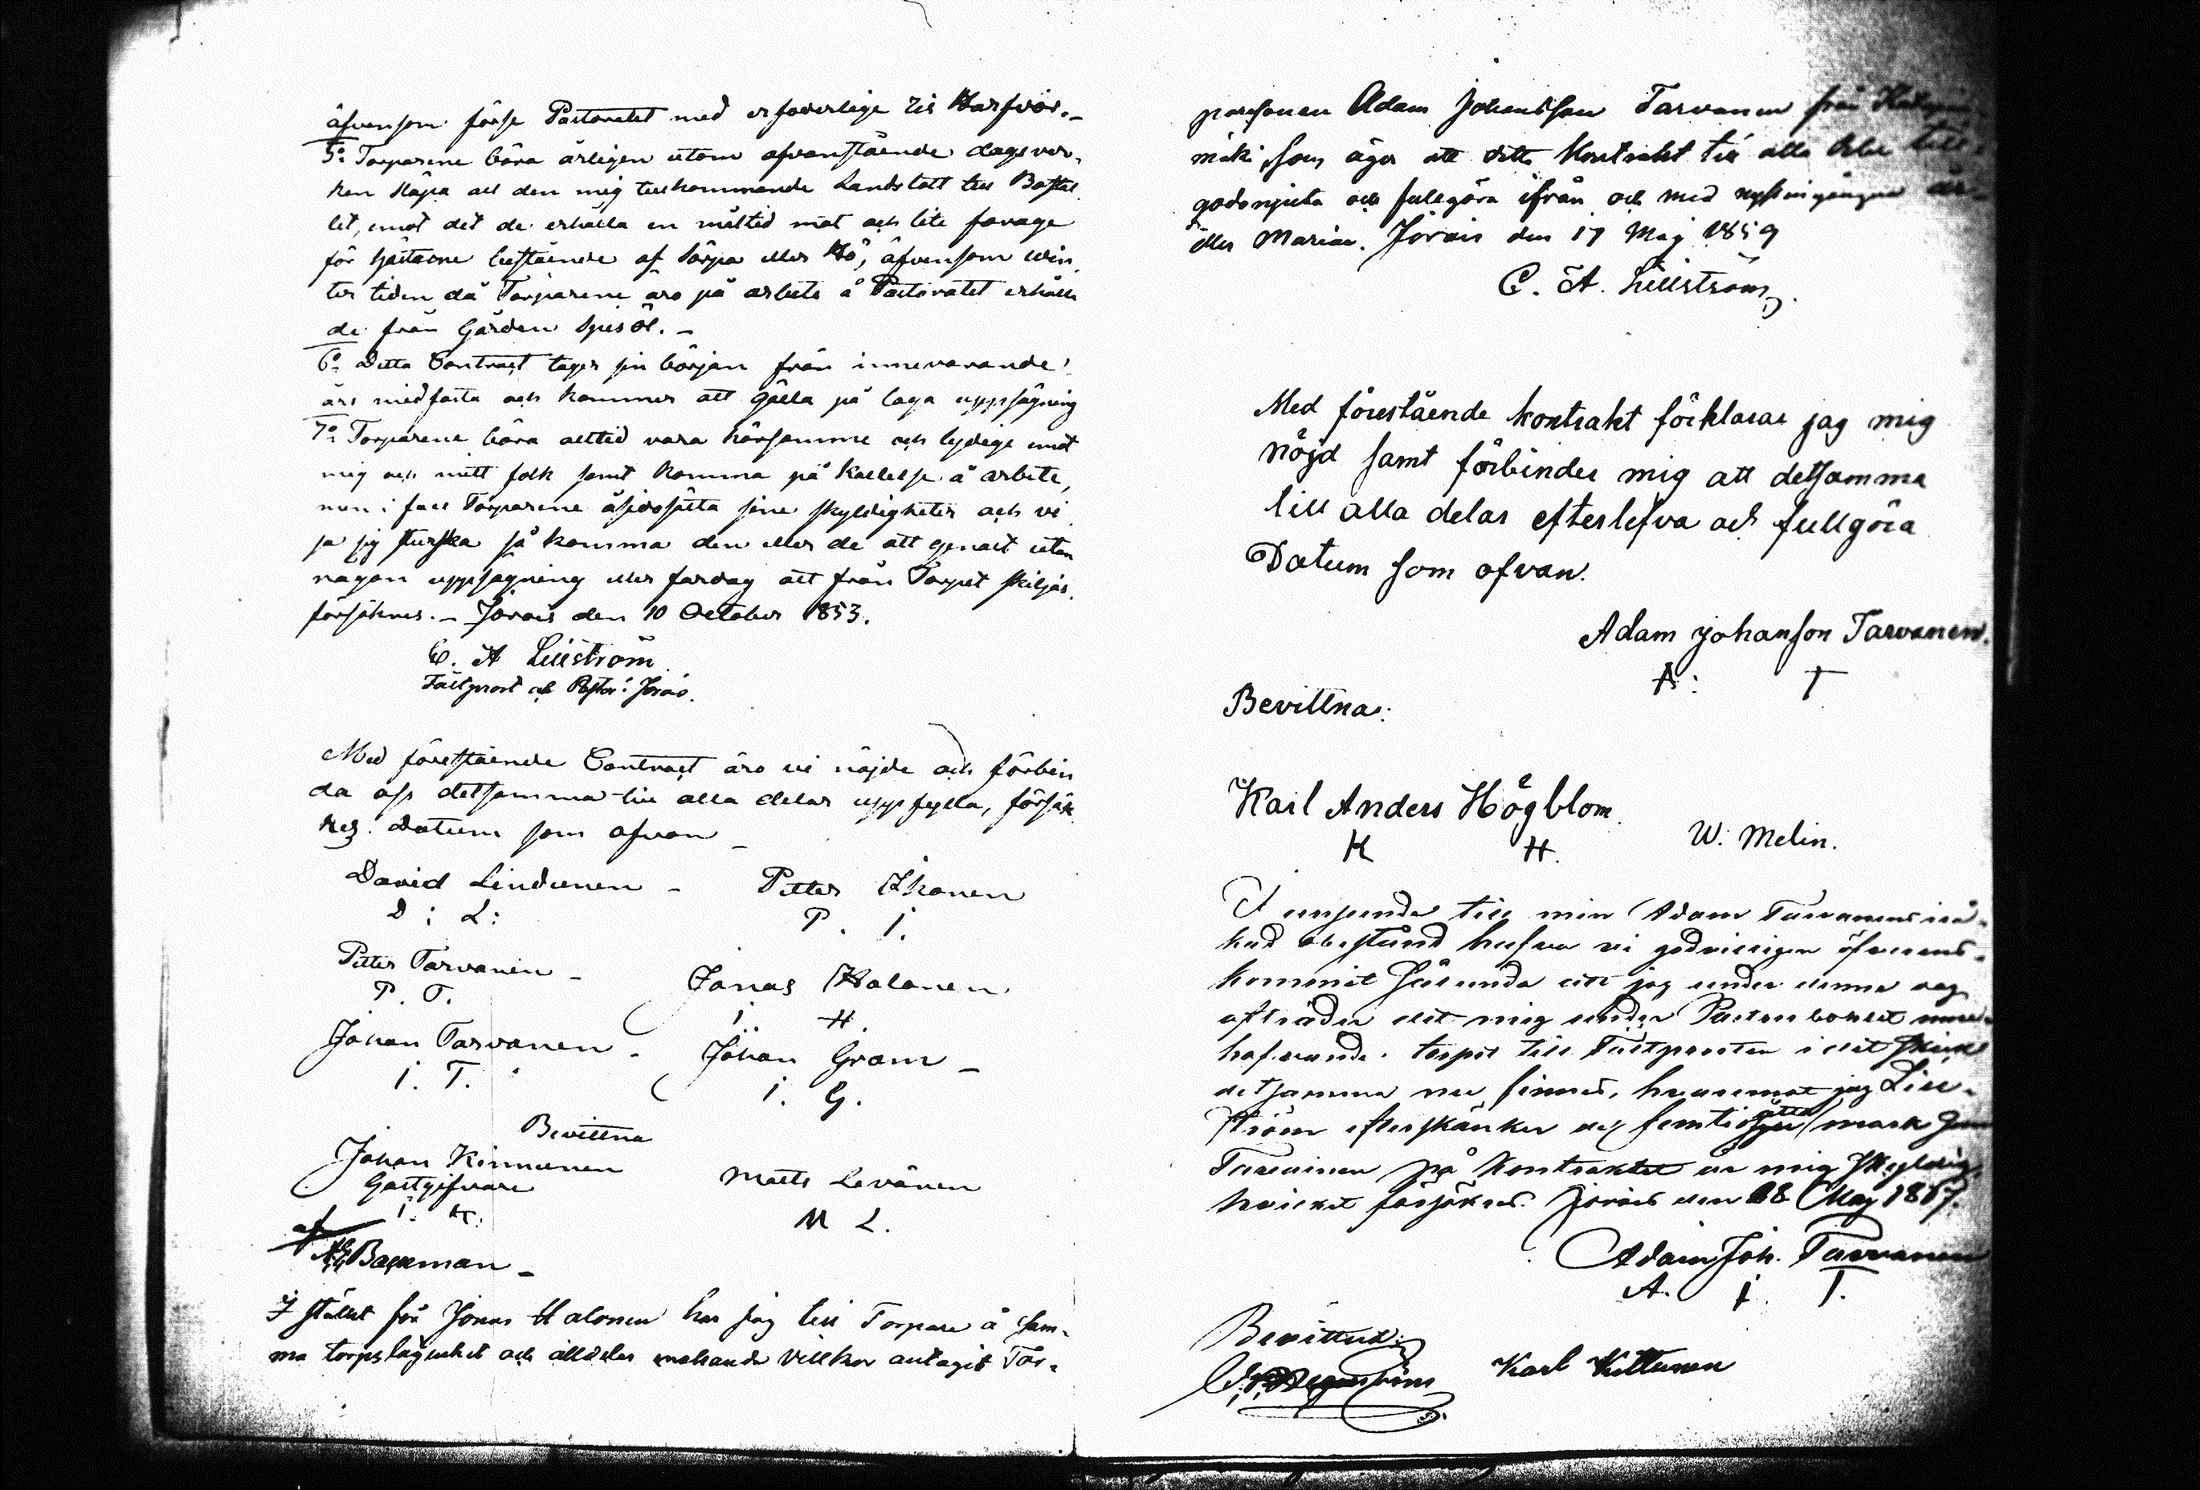 äfvensom förse Pastoratet med erforderlige
5o Torparene böra årligen utom ofvanstående dagsver-
ken köpa all den mig tillkommande Landstatt till Bostäl
let, emot det de erhålla en måltid mat och lite forage
för hästarne bestående af Sörpa eller Hö, äfvensom vin
ter tiden då Torparene äro på arbete å Pastoratet erhålla
de från Gården Spisöl. –
6o Detta Contract tager sin början från innevarande
års midfasta och kommer att gälla på laga uppsägning
7o Torparene böra alltid vara hörsamme och lydige emot
mig och mitt folk samt komma på kallelse å arbete,
men i fall Torparene åsidosätta sine skyldigheter och vi
sa sig turska så komma den eller de att genast utan
någon uppsägning eller fardag att från Torpet skiljas.
försäkras. – Jorois den 10 October 1853.
E. A Lillström
Fältprost och Pastor i Jorois.
Med föreståënde Contract äro vi nöjde och förbin
da oss detsamma till alla delar uppfylla, försäk
ras. Datum som ofvan –
David Lindunen – Petter Ihonen
D : L: P. I.
Petter Tarvanen – Jonas Halonen
P. T. I H.
Johan Tarvanen – Johan Gram –
I. T. I. G.
Bevittna
Johan Kinnunen Matts Levänen
Gästgifvare
I. K. M L.
Backman –
I stället för Jonas Halonen har jag till Torpare å sam-
ma torpslägenhet och alldeles enahanda Villkor antagit Tor-
paresonen Adam Johansson Tarvanen från
mäki, som äger att detta Kontrakt till alla delar till-
godonjuta och fullgöra ifrån och med nystingångne år-
eller Mariæ. Jorois den 17 Maj 1859
E. A. Lillström
Med förestående kontrakt förklarar jag mig
nöjd samt förbinder mig att detsamma
till alla delar efterlefva och fullgöra
Datum som ofvan.
Adam Johansson Tarvanen.
A: T
Bevittna:
Karl Anders Högblom. W. Melin.
K H.
I anseende till min Adam Tarvanens
kad obestånd hafva vi godvilligen öfverens-
kommit sålunda att jag under denna dag
afträder det mig under Pastorsbolet inne-
hafvande torpet till Fältprosten i det skick
detsamma nu finnes, hvaremot jag Lill-
ström efterskänker de femtio åtta mark som
Tarvainen på Kontraktet är mig skyldig,
hvilket försäkras. Jorois den 28 Maj 1867.
Adam Joh. Tarvanen
A. I. T.
Bevittna: Karl Kettunen